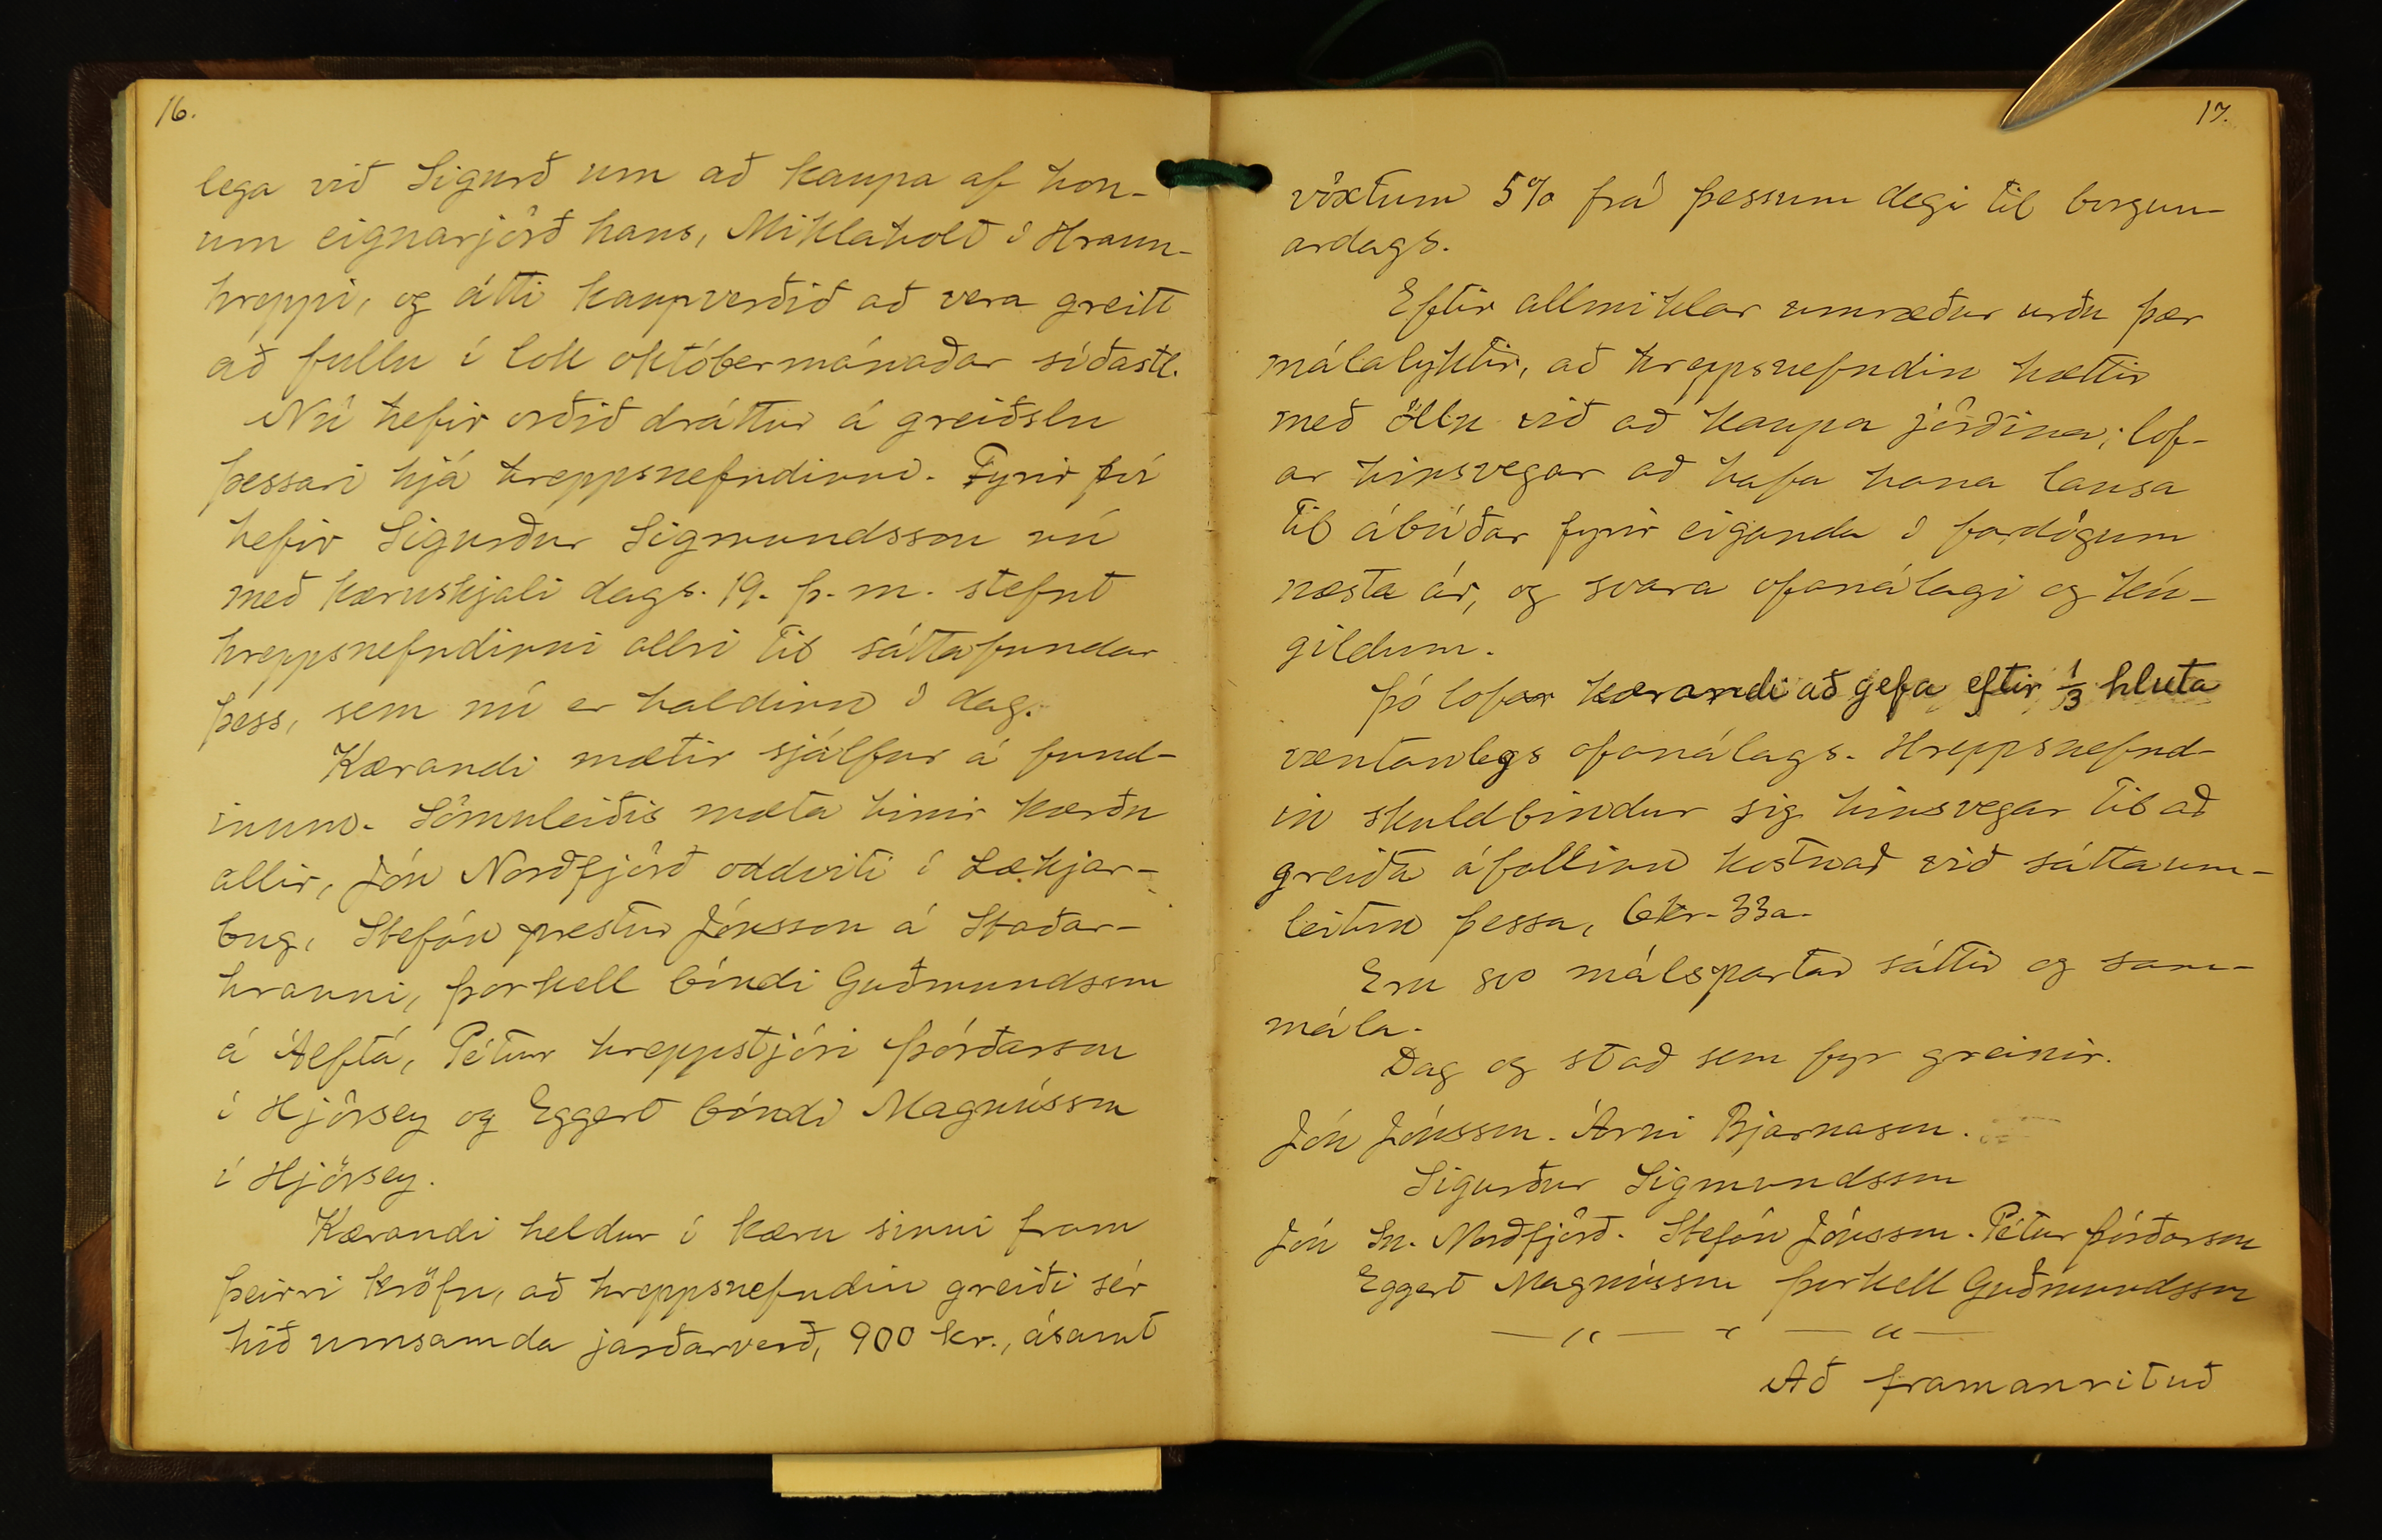 16.
lega við Sigurð um að kaupa af hon-
um eignarjörð hans, Miklaholt í Hraun-
hreppi, og átti kaupverðið að vera greitt
að fullu í lok októbermánaðar síðastl.
Nú hefir orðið dráttur á greiðslu
þessari hjá hreppsnefndinni. Fyrir því
hefir Sigurður Sigmundsson nú
með kæruskjali dags. 19. þ. m. stefnt
hreppsnefndinni allri til sáttafundar
þess, sem nú er haldinn í dag.
Kærandi mætir sjálfur á fund-
inum. Sömuleiðis mæta hinir kærðu
allir, Jón Norðfjörð oddviti í Lækjar-
bug, Stefán prestur Jónsson á Staðar-
hrauni, Þorkell bóndi Guðmundsson
á Álftá, Pétur hreppstjóri Þórðarson
í Hjörsey og Eggert bóndi Magnússon
í Hjörsey.
Kærandi heldur í kæru sinni fram
þeirri kröfu, að hreppsnefndin greiði sér
hið umsamda jarðarverð, 900 kr., ásamt
17.
vöxtum 5% frá þessum degi til borgun-
ardags.
Eftir allmiklar umræður urðu þær
málalyktir, að hreppsnefndin hættir
með öllu við að kaupa jörðina; lof-
ar hinsvegar að hafa hana lausa
til ábúðar fyrir eiganda í fardögum
næsta ár, og svara ofanálagi og kú-
gildum.
Þó lofar kærandi að gefa eftir 1/3 hluta
væntanlegs ofanálags. Hreppsnefnd-
in skuldbindur sig hinsvegar til að
greiða áfallinn kostnað við sáttaum-
leitun þessa, 6kr. 33a.
Eru svo málspartar sáttir og sam-
mála.
Dag og stað sem fyr greinir.
Jón Jónsson. Árni Bjarnason.
Sigurður Sigmundsson
Jón Sn. Norðfjörð. Stefán Jónsson. Pétur Þórðarson
Eggert Magnússon Þorkell Guðmundsson
— „ — „ — „ —
Að framanrituð